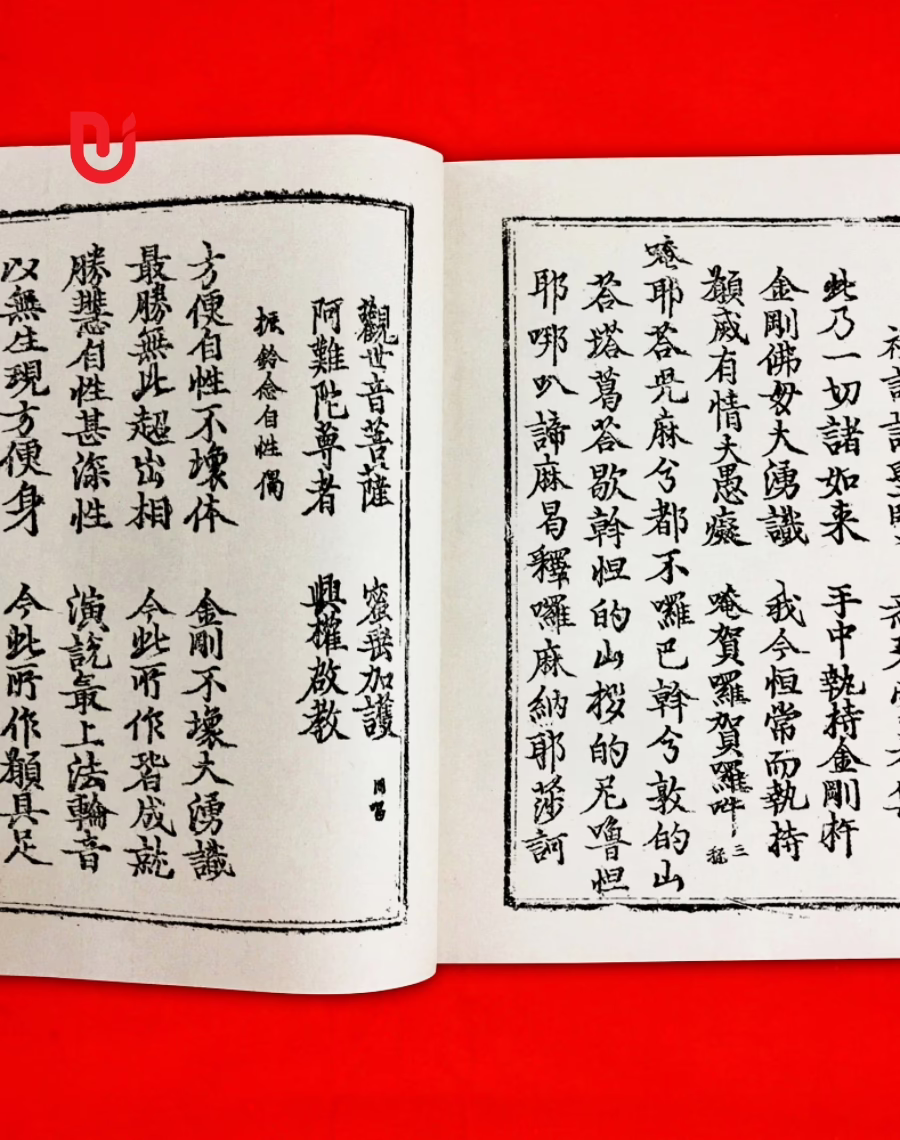 此乃一切諸如来　手中執持金剛杵
金剛佛母大湧讖　我今恒常而執持
願㓕有情大愚癡　唵賀囉賀囉吽　三𥡴
唵耶荅咒麻兮都不囉巴斡兮敦的山
荅塔葛荅歇斡怛的山拶的尼嚕怛
耶哪叭諦麻曷釋囉麻納耶莎訶
觀世音菩薩　密垂加護　同唱
阿難陀尊者　興權啟教
振鈴念自性偈
方便自性不壞体　金剛不壞大湧讖
最勝無此超出相　今此所作皆成就
勝慧自性甚深性　演說最上法輪音
以無生現方便身　今此所作願具足